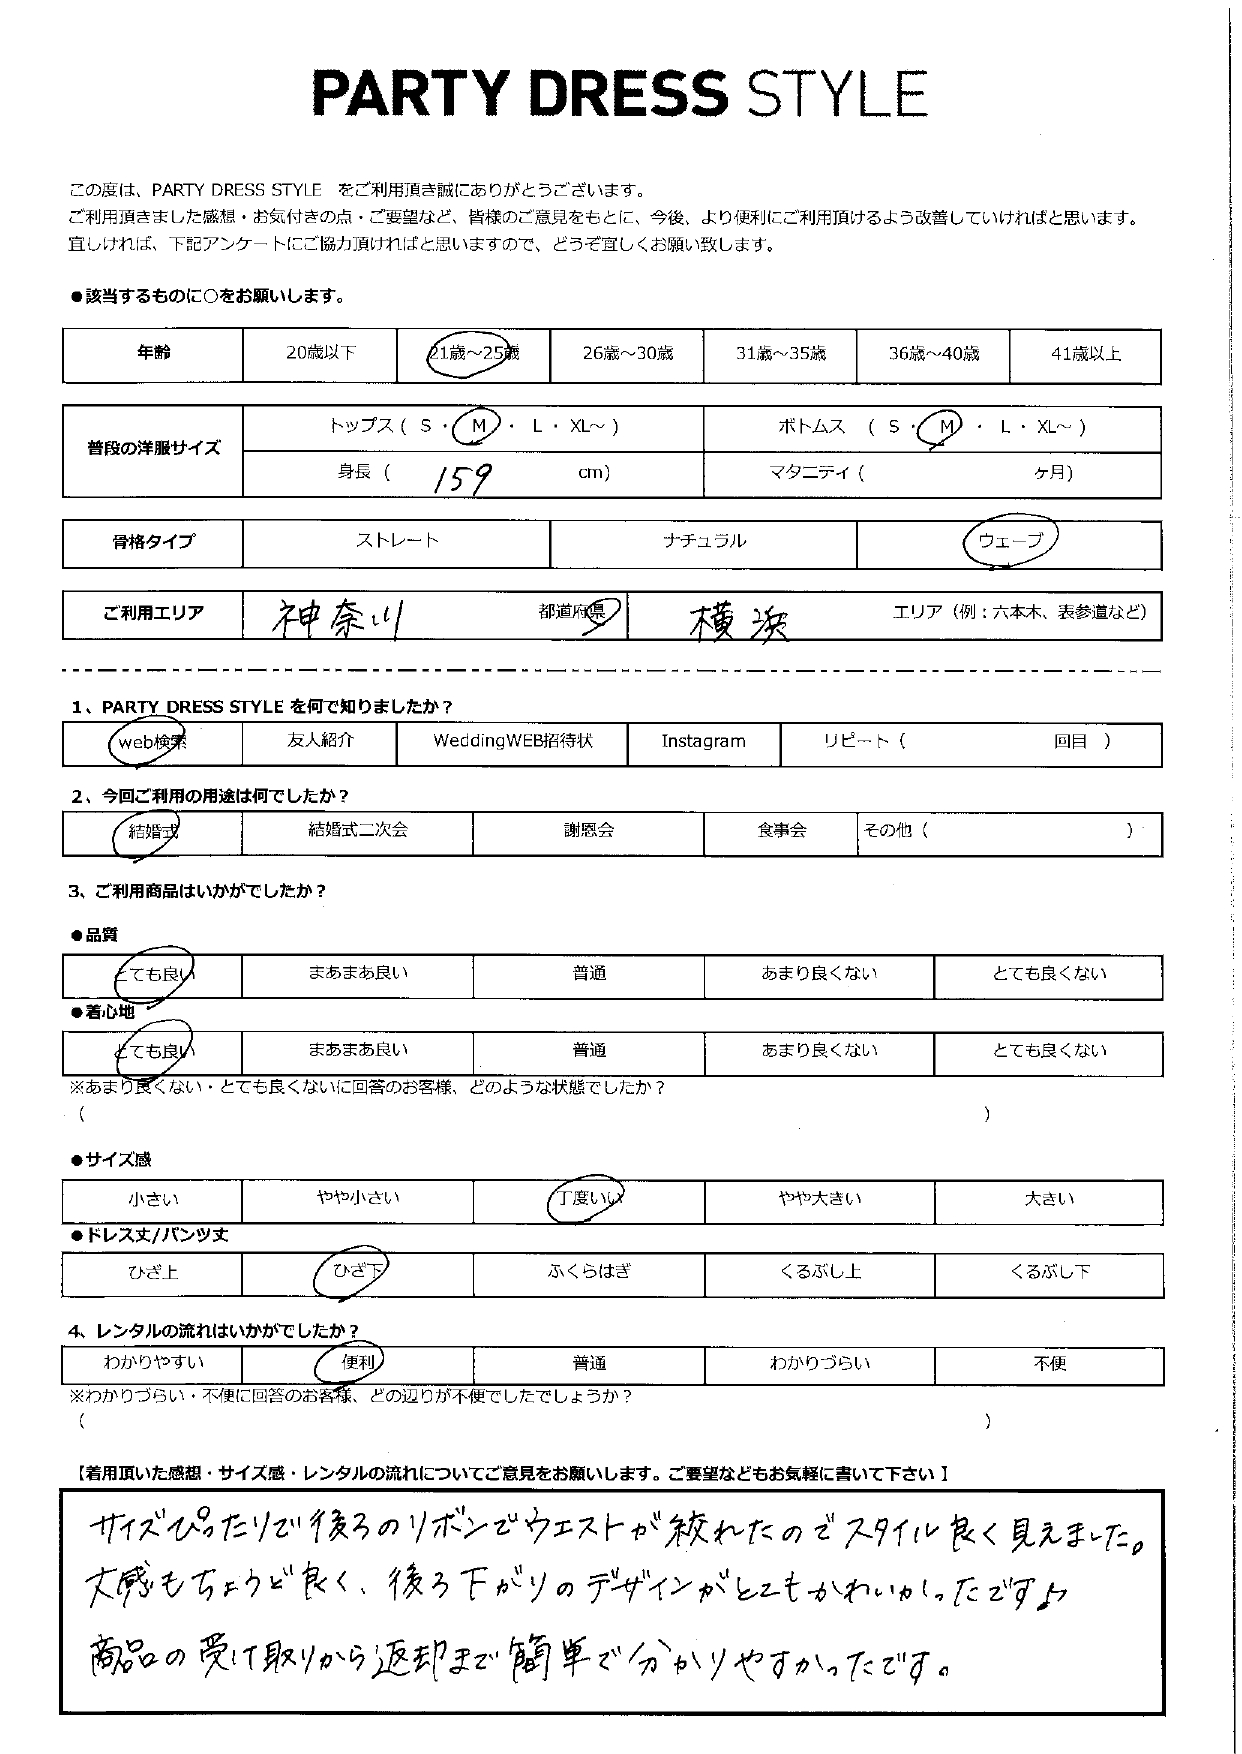 PARTY DRESS STYLE
この度は、PARTY DRESS STYLE をご利用頂き誠にありがとうございます。
ご利用頂きました感想・お気付きの点・ご要望など、皆様のご意見をもとに、今後、より便利にご利用頂けるよう改善していければと思います。
宜しければ、下記アンケートにご協力頂ければと思いますので、どうぞ宜しくお願い致します。
●該当するものに○をお願いします。
年齢 20歳以下 21歳～25歳 26歳～30歳 31歳～35歳 36歳～40歳 41歳以上
普段の洋服サイズ トップス ( S ・ M ・ L ・ XL～ ) ボトムス ( S ・ M ・ L ・ XL～ )
身長 ( 159 cm) マタニティ ( ヶ月)
骨格タイプ ストレート ナチュラル ウェーブ
ご利用エリア 神奈川 都道府県 横浜 エリア（例：六本木、表参道など）
1、PARTY DRESS STYLE を何で知りましたか？
web検索 友人紹介 WeddingWEB招待状 Instagram リピート ( 回目 )
2、今回ご利用の用途は何でしたか？
結婚式 結婚式二次会 謝恩会 食事会 その他 ( )
3、ご利用商品はいかがでしたか？
●品質
とても良い まあまあ良い 普通 あまり良くない とても良くない
●着心地
とても良い まあまあ良い 普通 あまり良くない とても良くない
※あまり良くない・とても良くないに回答のお客様、どのような状態でしたか？
( )
●サイズ感
小さい やや小さい 丁度いい やや大きい 大きい
●ドレス丈/パンツ丈
ひざ上 ひざ下 ふくらはぎ くるぶし上 くるぶし下
4、レンタルの流れはいかがでしたか？
わかりやすい 便利 普通 わかりづらい 不便
※わかりづらい・不便に回答のお客様、どの辺りが不便でしたでしょうか？
( )
【着用頂いた感想・サイズ感・レンタルの流れについてご意見をお願いします。ご要望などもお気軽に書いて下さい】
サイズぴったりで後ろのリボンでウエストが絞れたのでスタイル良く見えました。
丈感もちょうど良く、後ろ下がりのデザインがとてもかわいかったです♪
商品の受け取りから返却まで簡単で分かりやすかったです。